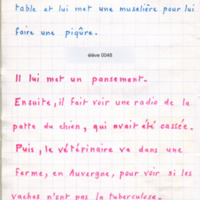 table et lui met une muselière pour lui
faire une piqûre.
élève 0048
Il lui met un pansement.
Ensuite, il fait voir une radio de la
patte du chien, qui avait été cassée.
Puis, le vétérinaire va dans une
ferme, en Auvergne, pour voir si les
vaches n'ont pas la tuberculose.